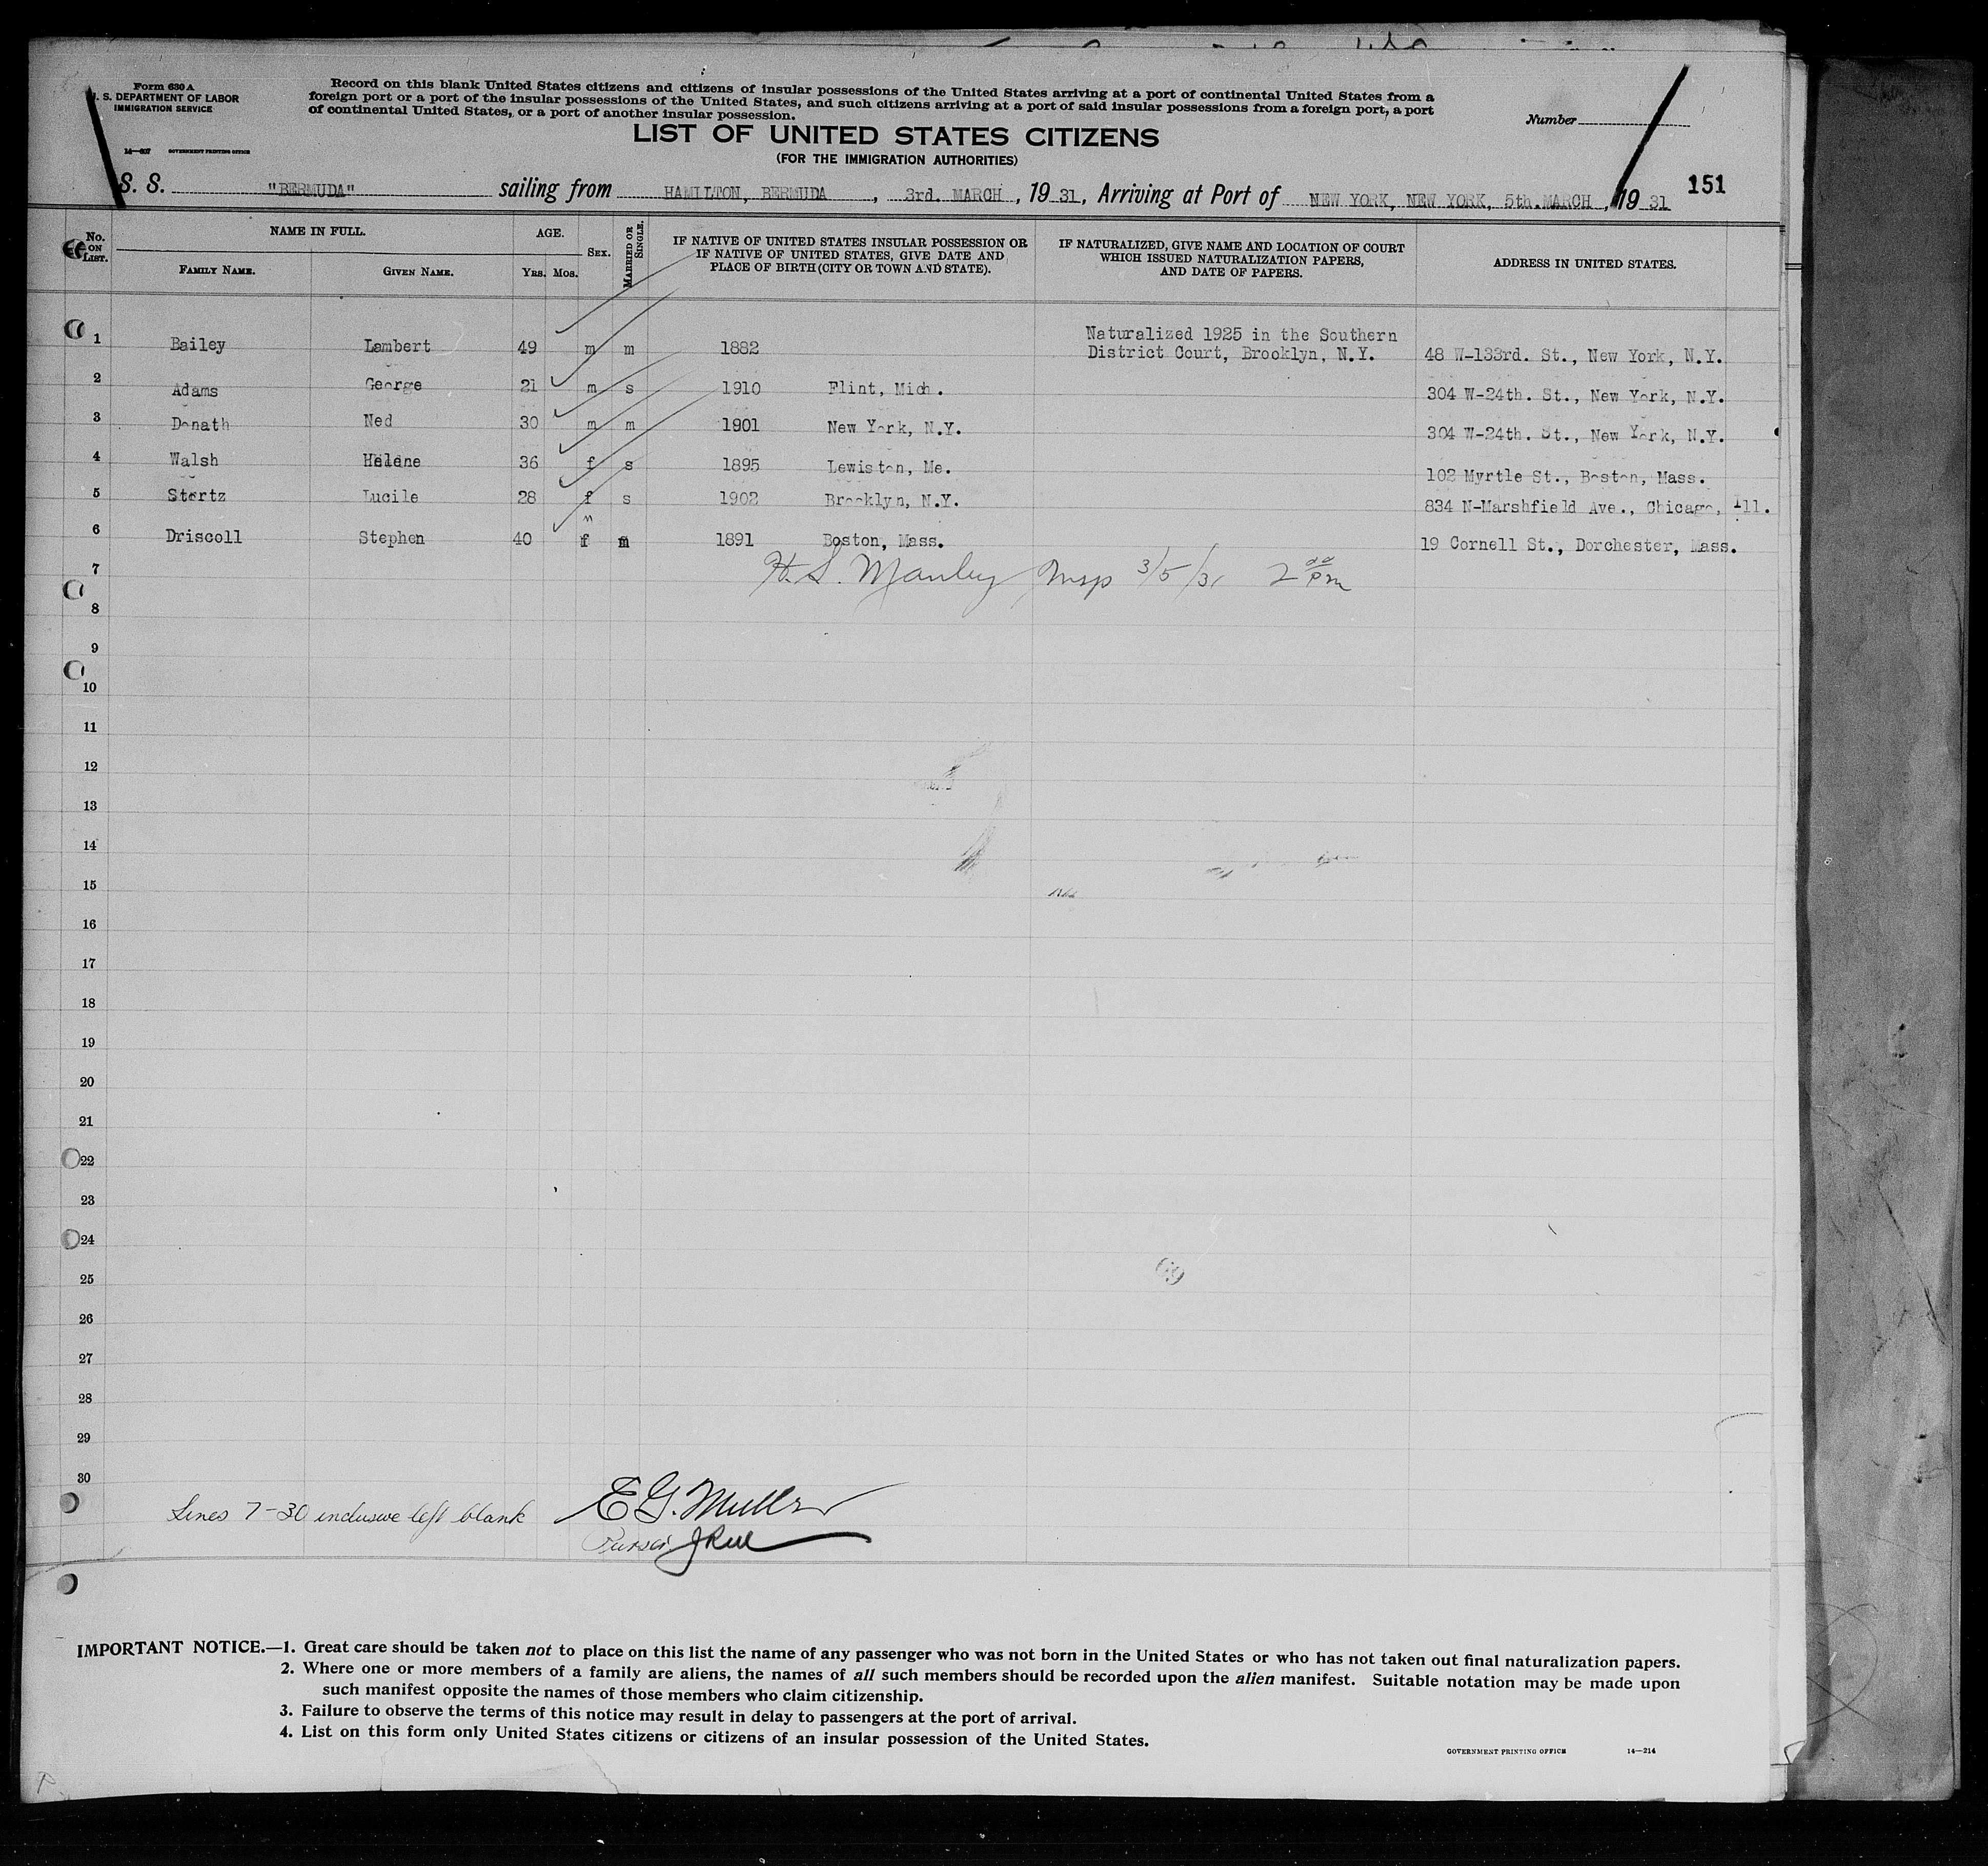 Form 630 A
U. S. DEPARTMENT OF LABOR
IMMIGRATION SERVICE
14—207 GOVERNMENT PRINTING OFFICE
Record on this blank United States citizens and citizens of insular possessions of the United States arriving at a port of continental United States from a
foreign port or a port of the insular possessions of the United States, and such citizens arriving at a port of said insular possessions from a foreign port, a port
of continental United States, or a port of another insular possession.
Number
LIST OF UNITED STATES CITIZENS
(FOR THE IMMIGRATION AUTHORITIES)
S. S. "BERMUDA" sailing from HAMILTON, BERMUDA, 3rd. MARCH, 1931, Arriving at Port of NEW YORK, NEW YORK, 5th.MARCH, 1931 151
No. ON LIST. NAME IN FULL. FAMILY NAME. GIVEN NAME. AGE. YRS. MOS. SEX. MARRIED OR SINGLE. IF NATIVE OF UNITED STATES INSULAR POSSESSION OR IF NATIVE OF UNITED STATES, GIVE DATE AND PLACE OF BIRTH (CITY OR TOWN AND STATE). IF NATURALIZED, GIVE NAME AND LOCATION OF COURT WHICH ISSUED NATURALIZATION PAPERS, AND DATE OF PAPERS. ADDRESS IN UNITED STATES.
1 Bailey Lambert 49 m m 1882 Naturalized 1925 in the Southern District Court, Brooklyn, N.Y. 48 W-133rd. St., New York, N.Y.
2 Adams George 21 m s 1910 Flint, Mich. 304 W-24th. St., New York, N.Y.
3 Donath Ned 30 m m 1901 New York, N.Y. 304 W-24th. St., New York, N.Y.
4 Walsh Helene 36 f s 1895 Lewiston, Me. 102 Myrtle St., Boston, Mass.
5 Stertz Lucile 28 f s 1902 Brooklyn, N.Y. 834 N-Marshfield Ave., Chicago, Ill.
6 Driscoll Stephen 40 f m m 1891 Boston, Mass. 19 Cornell St., Dorchester, Mass.
7 H. S. Manley Insp 3/5/31 2 00 pm
8
9
10
11
12
13
14
15
16
17
18
19
20
21
22
23
24
25
26
27
28
29
30
Lines 7-30 inclusive left blank E G. Muller
Purser
IMPORTANT NOTICE.—1. Great care should be taken not to place on this list the name of any passenger who was not born in the United States or who has not taken out final naturalization papers.
2. Where one or more members of a family are aliens, the names of all such members should be recorded upon the alien manifest. Suitable notation may be made upon
such manifest opposite the names of those members who claim citizenship.
3. Failure to observe the terms of this notice may result in delay to passengers at the port of arrival.
4. List on this form only United States citizens or citizens of an insular possession of the United States.
GOVERNMENT PRINTING OFFICE 14—214